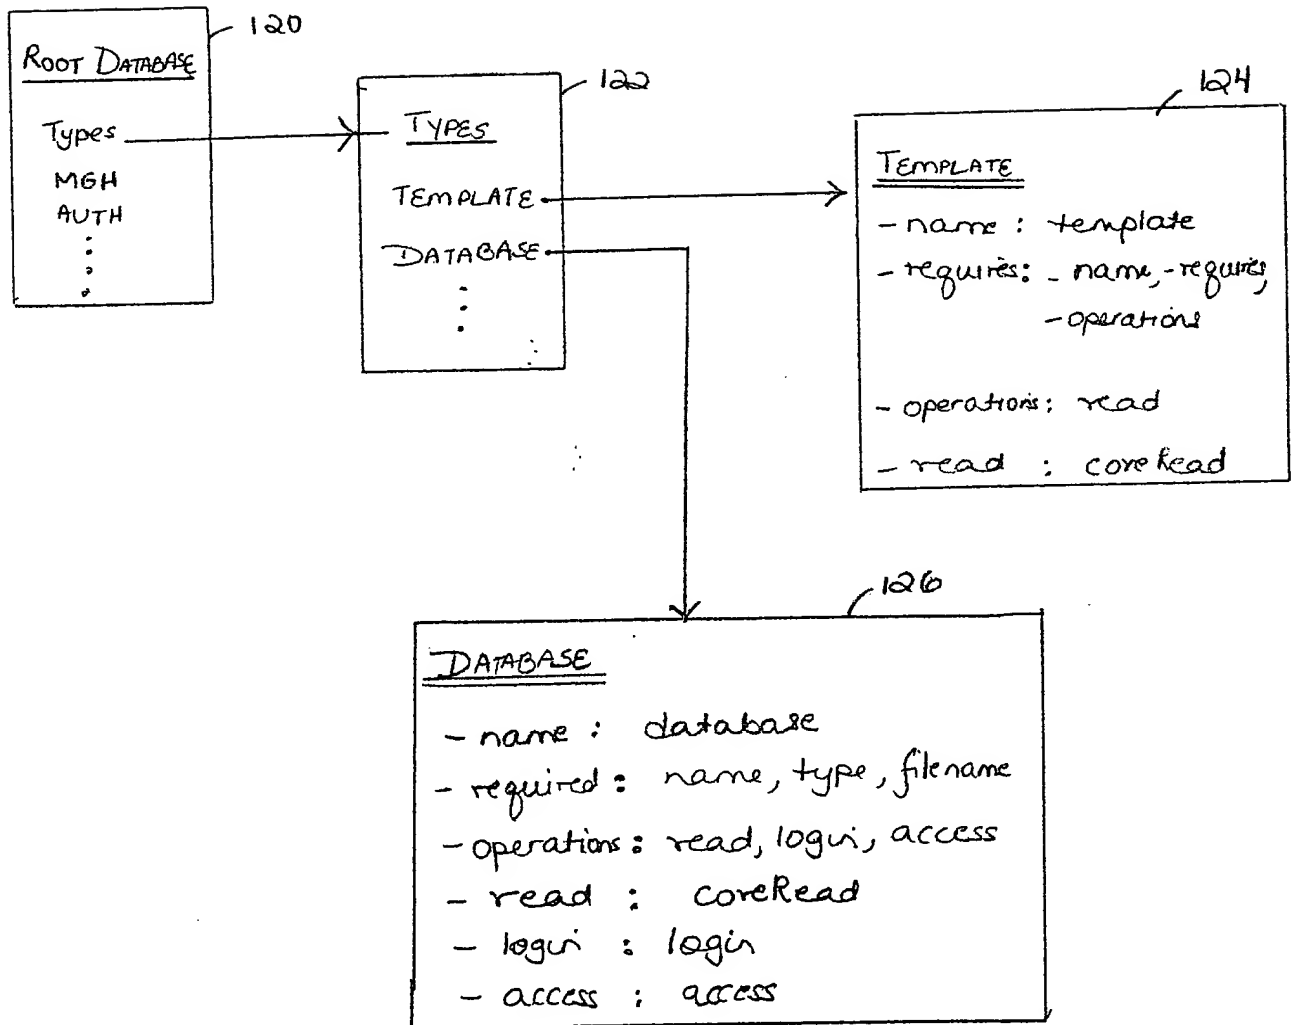 120
ROOT DATABASE
Types
MGH
AUTH
122
TYPES
TEMPLATE
DATABASE
124
TEMPLATE
- name : template
- requires: - name, - requires,
- operations
- operations: read
- read : coreRead
126
DATABASE
- name : database
- required : name, type, filename
- operations : read, login, access
- read : coreRead
- login : login
- access : access